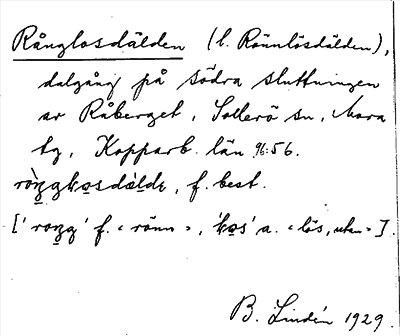 Rånglosdälden (l. Rönnlösdälden),
dalgång på södra sluttningen
av Råberget, Sollerö sn, Mora
tg, Kopparb. län 96:56.
f. best.
f. "rönn", a. "lös, utan"].
B. Lindén 1929.